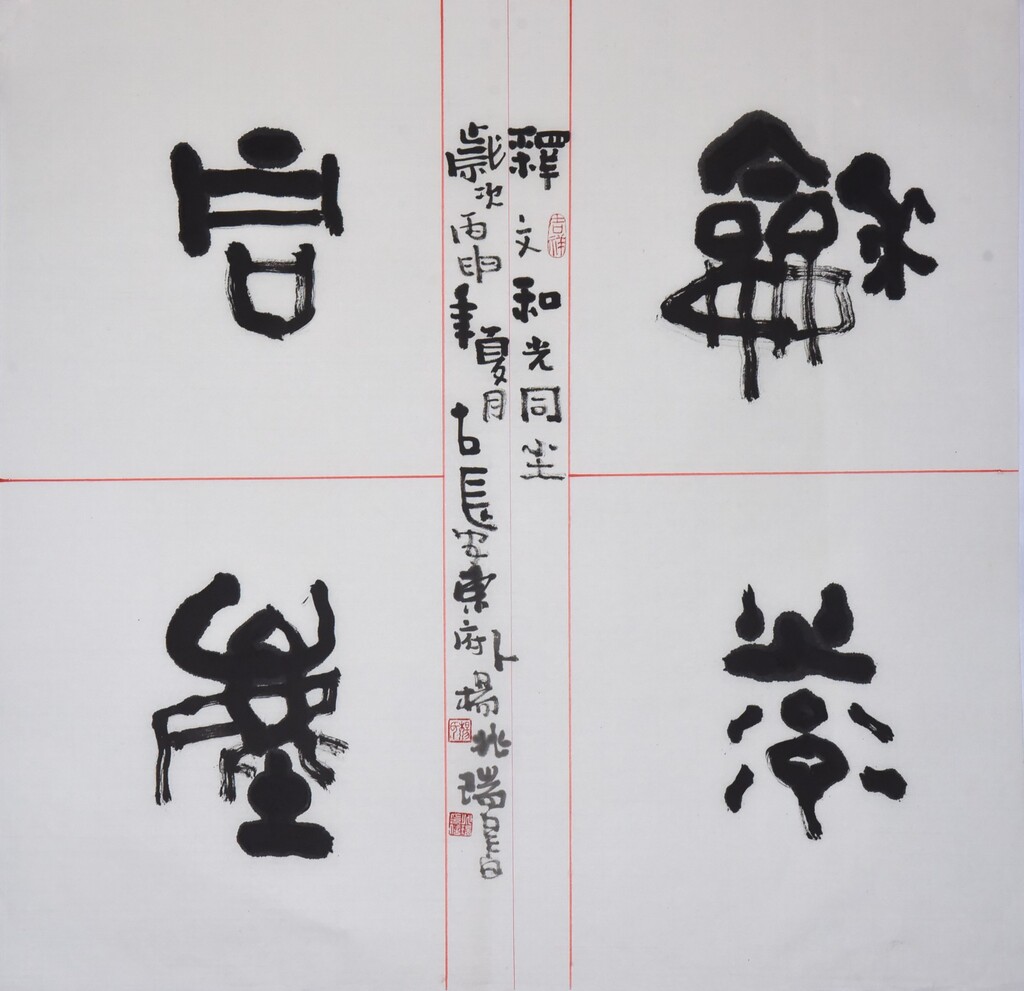 龢光
同塵
釋文和光同尘
歲次丙申年夏月古長安東府卜楊兆瑞書
吉祥